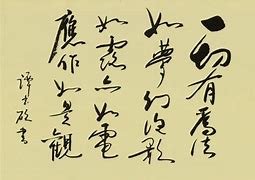 一切有為法
如夢幻泡影
如露亦如電
應作如是觀
譚書